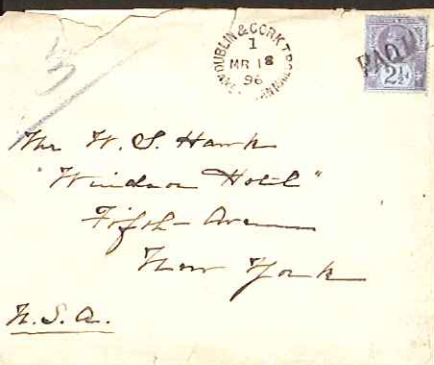 DUBLIN & CORK T.P.O
1
MR 18
96
PAQU
2½
Mr W. S. Hawk
"Windsor Hotel"
Fifth Avenue
New York
U.S.A.